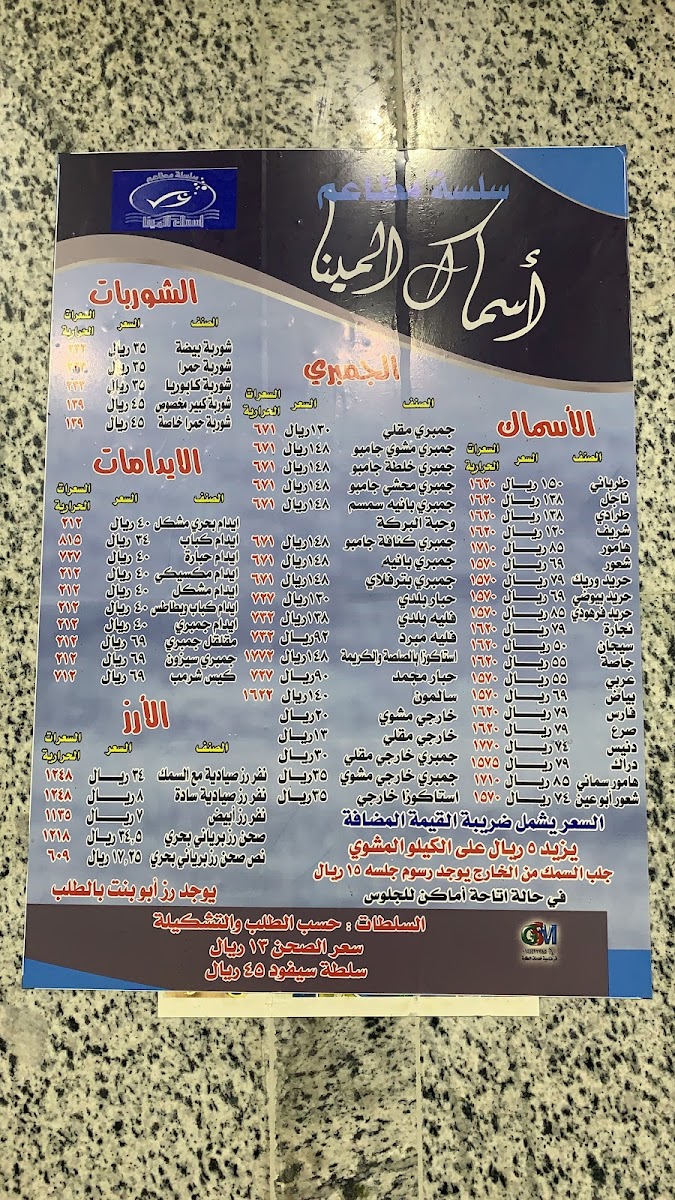 سلسة مطاعم
أسماك المينا
سلسلة مطاعم
أسماك المينا
الأسماك
الصنف السعر السعرات الحرارية
طرباني ١٥٠ ريال ١٦٢٠
ناجل ١٣٨ ريال ١٦٢٠
طرادي ١٣٨ ريال ١٦٢٠
شريف ١٢٠ ريال ١٦٢٠
هامور ٨٥ ريال ١٧١٠
شعور ٦٩ ريال ١٥٧٠
حريد وريك ٧٩ ريال ١٥٧٠
حريد بيوضي ٦٩ ريال ١٥٧٠
حريد قرهودي ٨٥ ريال ١٥٧٠
نجارة ٧٩ ريال ١٦٢٠
سيجان ٥٠ ريال ١٦٢٠
جاصة ٥٥ ريال ١٦٢٠
عربي ٥٥ ريال ١٥٧٠
بياض ٦٩ ريال ١٥٧٠
فارس ٧٩ ريال ١٦٢٠
صرع ٧٩ ريال ١٦٢٠
دنيس ٧٤ ريال ١٧٧٠
دراك ٧٩ ريال ١٥٧٥
هامور سماني ٨٥ ريال ١٧١٠
شعور أبو عين ٧٤ ريال ١٥٧٠
الجمبري
الصنف السعر السعرات الحرارية
جمبري مقلي ١٣٠ريال ٦٧١
جمبري مشوي جامبو ١٤٨ريال ٦٧١
جمبري خلطة جامبو ١٤٨ريال ٦٧١
جمبري محشي جامبو ١٤٨ريال ٦٧١
جمبري بانيه سمسم ١٤٨ريال ٦٧١
وحبة البركة
جمبري كنافة جامبو ١٤٨ريال ٦٧١
جمبري بانيه ١٤٨ريال ٦٧١
جمبري بترفلاي ١٤٨ريال ٦٧١
حبار بلدي ١٣٠ريال ٧٢٧
فليه بلدي ١٣٨ريال ٧٣٢
فليه مبرد ٩٢ريال ٧٣٢
استاكوزا بالصلصة والكريمة ١٤٨ريال ١٧٧٢
حبار مجمد ٩٠ريال ٧٢٧
سالمون ١٤٠ريال ١٦٢٢
خارجي مشوي ٢٠ريال
خارجي مقلي ١٣ريال
جمبري خارجي مقلي ٣٠ريال
جمبري خارجي مشوي ٣٥ريال
استاكوزا خارجي ٣٥ريال
الشوربات
الصنف السعر السعرات الحرارية
شوربة بيضة ٣٥ ريال
شوربة حمرا ٣٥ ريال
شوربة كابوريا ٣٥ ريال
شوربة كبير مخصوص ٤٥ ريال ١٣٩
شوربة حمرا خاصة ٤٥ ريال ١٣٩
الايدامات
الصنف السعر السعرات الحرارية
إيدام بحري مشكل ٤٠ ريال ٢١٢
إيدام كباب ٣٤ ريال ٨١٥
إيدام حبارة ٤٠ ريال ٧٣٧
إيدام مكسيكي ٤٠ ريال ٢١٢
إيدام مشكل ٤٠ ريال ٢١٢
إيدام كباب وبطاطس ٤٠ ريال ٢١٢
إيدام جمبري ٤٠ ريال ٢١٢
مقلقل جمبري ٦٩ ريال ٢١٢
جمبري سيزون ٦٩ ريال ٢١٢
كيس شرمب ٦٩ ريال ٧١٢
الأرز
الصنف السعر السعرات الحرارية
نفر رز صيادية مع السمك ٣٤ ريال ١٢٤٨
نفر رز صيادية سادة ٨ ريال ١٢٤٨
نفر رز أبيض ٧ ريال ١١٣٥
صحن رز برياني بحري ٣٤,٥ ريال ١٢١٨
نص صحن رز برياني بحري ١٧,٢٥ ريال ٦٠٩
يوجد رز أبو بنت بالطلب
السعر يشمل ضريبة القيمة المضافة
يزيد ٥ ريال على الكيلو المشوي
جلب السمك من الخارج يوجد رسوم جلسه ١٥ ريال
في حالة اتاحة أماكن للجلوس
السلطات : حسب الطلب والتشكيلة
سعر الصحن ١٣ ريال
سلطة سيفود ٤٥ ريال
GSM